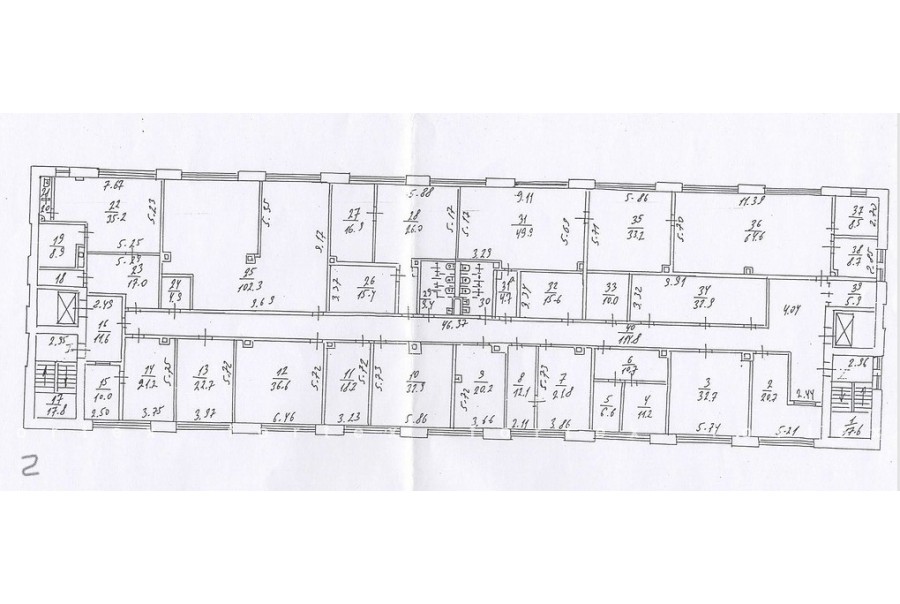 7.67
22
25.2
5.23
5.35
9.17
27
16.3
5.88
28
26.0
5.17
5.17
9.11
31
49.9
5.69
3.29
5.71
5.86
35
33.2
5.70
11.39
36
64.6
37
8.5
38
8.7
39
5.9
19
8.9
18
5.25
5.29
23
17.0
24
4.3
25
102.3
9.69
3.37
26
15.4
29
3.4
30
31
4.7
32
15.6
33
10.0
3.32
34
32.9
9.91
4.04
2.49
16
11.6
46.37
40
2.95
2.96
17
17.8
15
10.0
2.50
14
21.2
5.75
3.75
13
22.7
5.72
3.97
12
36.6
5.72
6.46
11
18.2
5.73
3.23
10
5.86
9
20.2
5.72
3.66
8
12.1
2.11
7
21.8
5.73
3.86
6
10.7
5
6.6
4
11.2
3
32.7
5.71
2
5.21
2.44
1
17.6
2